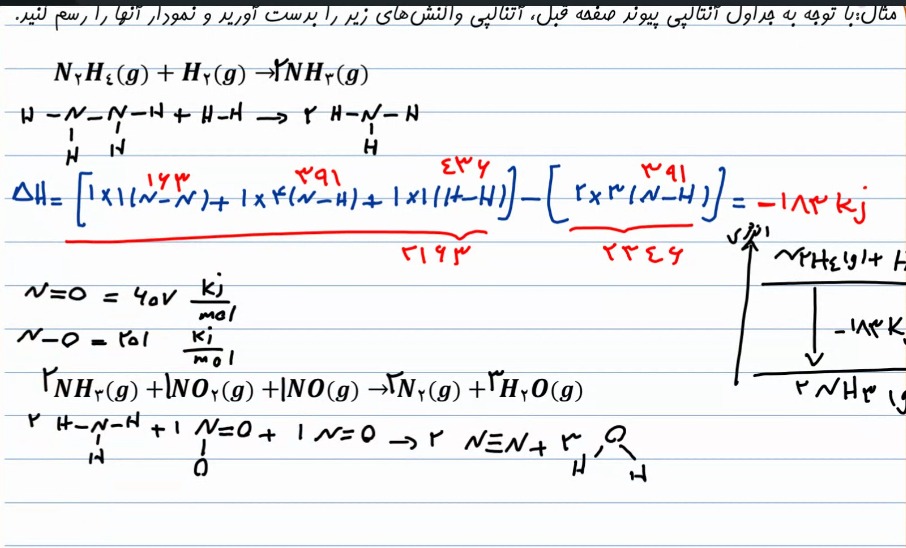 مثال:با توجه به جداول آنتالپی پیوند صفحه قبل، آنتالپی واکنش‌های زیر را بدست آورید و نمودار آنها را رسم کنید.
N۲H٤(g) + H۲(g) → ۲NH۳(g)
H – N – N – H + H – H → ۲ H – N – H
H H H
۱۶۳ ۳۹۱ ٤۳۶ ۳۹۱
ΔH = [۱×۱(N–N) + ۱×۴(N–H) + ۱×۱(H–H)] – [۲×۳(N–H)] = –۱۸۳ kj
۲۱۶۳ ۲۳٤۶
انرژی
N۲H٤(g) + H
N=O = ۶۰۷ kj/mol
–۱۸۳ K
N–O = ۲۰۱ kj/mol
۲NH۳(g)
۲NH۳(g) + ۱NO۲(g) + ۱NO(g) → ۲N۲(g) + ۳H۲O(g)
۲ H–N–H + ۱ N=O + ۱ N=O → ۲ N≡N + ۳ O
H O H H